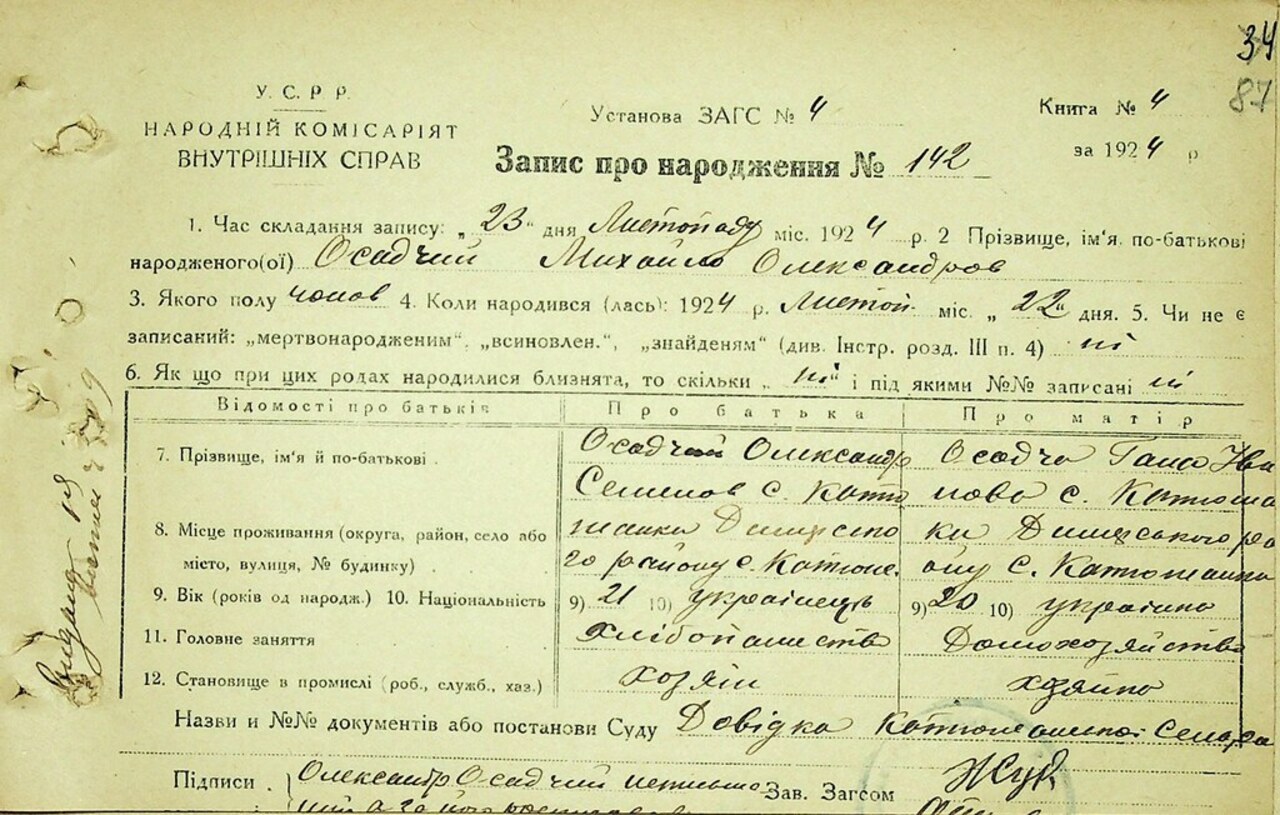 34
87
У. С. Р Р.
НАРОДНІЙ КОМІСАРІЯТ
ВНУТРІШНІХ СПРАВ
Установа ЗАГС № 4
Книга № 4
за 1924 р
Запис про народження № 142
1. Час складання запису: „23" дня Листопаду міс. 1924 р. 2 Прізвище, ім'я, по-батькові
народженого(ої) Осадчий Михайло Олександров
3. Якого полу чолов 4. Коли народився (лась): 1924 р. Листоп. міс. „22" дня. 5. Чи не є
записаний: „мертвонародженим", „всиновлен.", „знайденям" (див. Інстр. розд. III п. 4) ні
6. Як що при цих родах народилися близнята, то скільки „ні" і під якими №№ записані ні
Відомості про батьків Про батька Про матір
7. Прізвище, ім'я й по-батькові Осадчий Олександр Осадча Ганна Іва
Семенов с. Катю нова с. Катюжан
8. Місце проживання (округа, район, село або жанки Димерсько ки Димерського ра
місто, вулиця, № будинку) го району с. Катюж. ону с. Катюжанка
9. Вік (років од народж.) 10. Національність 9) 21 10) українець 9) 20 10) українка
11. Головне заняття хлібопашество Домохозяйство
12. Становище в промислі (роб., служб., хаз.) хозяїн хозяйка
Назви и №№ документів або постанови Суду Довідка Катюжанської Сельра
Підписи Олександр Осадчий Зав. Загсом